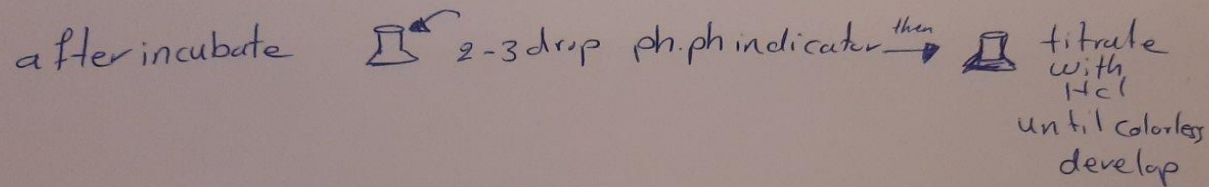 after incubate 2-3 drop ph.ph indicator then titrate
with
Hcl
until colorless
develop